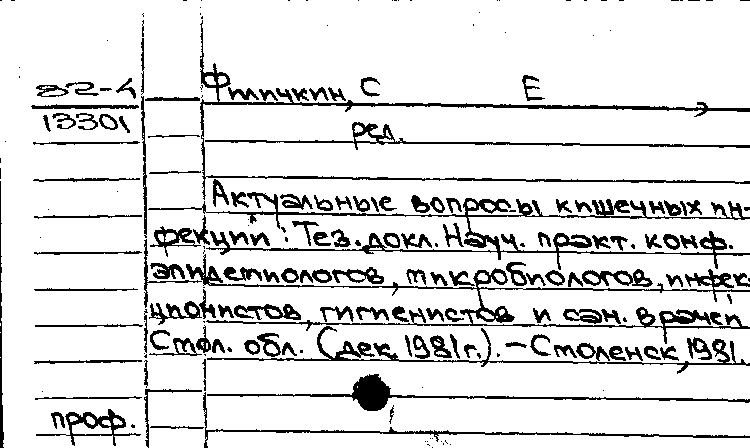 82-4 Филичкин, С Е
13301 ред.
Актуальные вопросы кишечных ин-
фекций: Тез. докл. Науч. практ. конф.
эпидемиологов, микробиологов, инфек
ционистов, гигиенистов и сан. врачей
Смол. обл. (дек. 1981г.). – Смоленск, 1981.
проф.